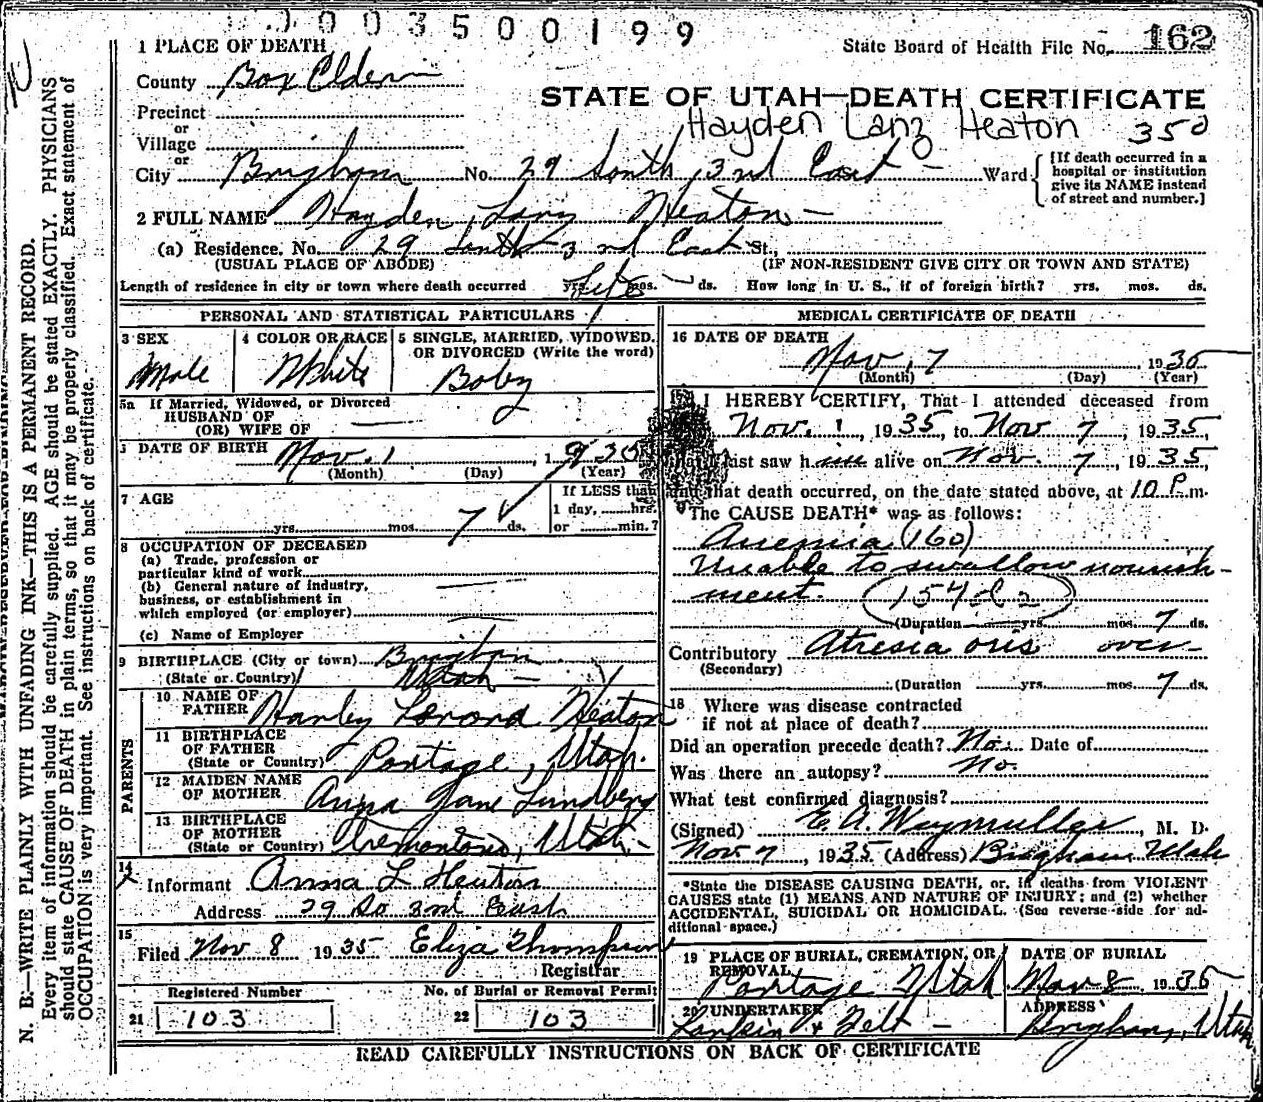 0003500199
State Board of Health File No. 162
STATE OF UTAH—DEATH CERTIFICATE
Hayden Lanz Heaton 350
1 PLACE OF DEATH
County Box Elder
Precinct
or
Village
or
City Brigham No. 29 South 3rd East Ward
[If death occurred in a
hospital or institution
give its NAME instead
of street and number.]
2 FULL NAME Hayden Lanz Heaton
(a) Residence. No. 29 South 3rd East St.,
(USUAL PLACE OF ABODE) (IF NON-RESIDENT GIVE CITY OR TOWN AND STATE)
Length of residence in city or town where death occurred yrs. Life mos. ds. How long in U. S., if of foreign birth? yrs. mos. ds.
PERSONAL AND STATISTICAL PARTICULARS
3 SEX
Male
4 COLOR OR RACE
White
5 SINGLE, MARRIED, WIDOWED,
OR DIVORCED (Write the word)
Baby
5a If Married, Widowed, or Divorced
HUSBAND OF
(OR) WIFE OF
6 DATE OF BIRTH Nov. 1 1935
(Month) (Day) (Year)
7 AGE
yrs. mos. 7 ds.
If LESS than
1 day, hrs.
or min.?
8 OCCUPATION OF DECEASED
(a) Trade, profession or
particular kind of work
(b) General nature of industry,
business, or establishment in
which employed (or employer)
(c) Name of Employer
9 BIRTHPLACE (City or town) Brigham
(State or Country) Utah
PARENTS
10 NAME OF
FATHER Harley Heaton
11 BIRTHPLACE
OF FATHER
(State or Country) Portage, Utah.
12 MAIDEN NAME
OF MOTHER Anna Jane Lundberg
13 BIRTHPLACE
OF MOTHER
(State or Country) Tremonton, Utah
14
Informant Anna L Heaton
Address 29 So 3rd East
15
Filed Nov 8 1935 Eliza Thompson
Registrar
Registered Number
21 103
No. of Burial or Removal Permit
22 103
MEDICAL CERTIFICATE OF DEATH
16 DATE OF DEATH
Nov. 7 1935
(Month) (Day) (Year)
17 I HEREBY CERTIFY, That I attended deceased from
Nov. 1, 1935, to Nov 7, 1935,
that I last saw him alive on Nov. 7, 1935,
and that death occurred, on the date stated above, at 10 P.m.
The CAUSE DEATH* was as follows:
Anemia (160)
Unable to swallow nourish-
ment.
(Duration yrs. mos. 7 ds.
Contributory Atresia oris
(Secondary)
(Duration yrs. mos. 7 ds.
18 Where was disease contracted
if not at place of death?
Did an operation precede death? No. Date of
Was there an autopsy? No.
What test confirmed diagnosis?
(Signed) E. A. Weymuller, M. D.
Nov 7, 1935 (Address) Brigham Utah
*State the DISEASE CAUSING DEATH, or, in deaths from VIOLENT
CAUSES state (1) MEANS AND NATURE OF INJURY; and (2) whether
ACCIDENTAL, SUICIDAL OR HOMICIDAL. (See reverse side for ad-
ditional space.)
19 PLACE OF BURIAL, CREMATION, OR
REMOVAL
Portage Utah
DATE OF BURIAL
Nov 8 1935
20 UNDERTAKER
& Felt
ADDRESS
Brigham, Utah
READ CAREFULLY INSTRUCTIONS ON BACK OF CERTIFICATE
N. B.—WRITE PLAINLY WITH UNFADING INK—THIS IS A PERMANENT RECORD.
Every item of information should be carefully supplied. AGE should be stated EXACTLY. PHYSICIANS
should state CAUSE OF DEATH in plain terms, so that it may be properly classified. Exact statement of
OCCUPATION is very important. See instructions on back of certificate.